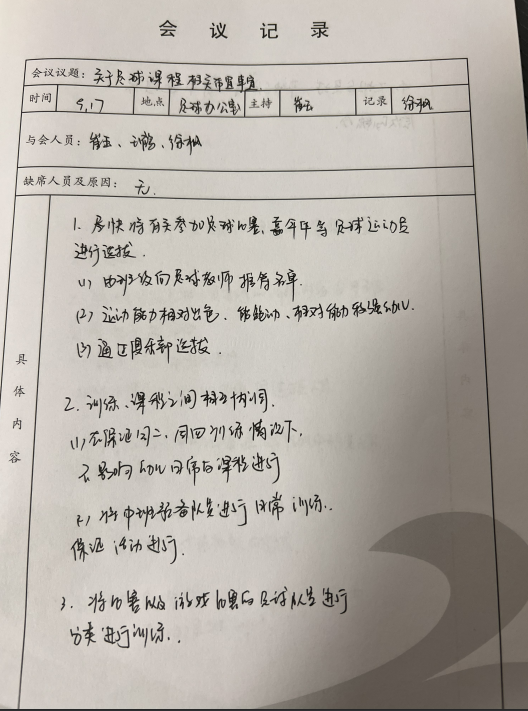 会议记录
会议议题：关于足球课程相关事宜
时间 9.17 地点 足球办公室 主持 记录 徐
与会人员：
缺席人员及原因：无.
具体内容
1. 尽快将有关参加足球比赛、嘉年华等足球运动员
进行选拔.
(1) 由班级向足球教师推荐名单.
(2) 运动能力相对出色、能跑动、相对能力较强幼儿.
(3) 通过俱乐部选拔.
2. 训练、课程之间相互协同.
(1) 在保证周二、周四训练情况下,
不影响幼儿日常的课程进行
(2) 将中班预备队员进行日常训练..
保证活动进行.
3. 将比赛以及游戏比赛的足球队员进行
分类进行训练..